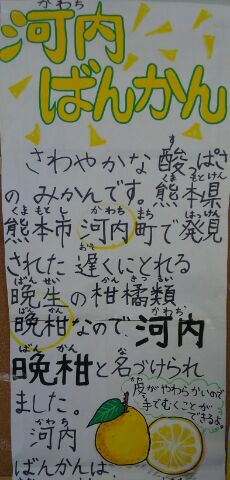 かわち
河内
ばんかん
さわやかな酸っぱさ
のみかんです。熊本県
熊本市河内町で発見
された遅くにとれる
晩生の柑橘類
晩柑なので河内
晩柑と名づけられ
ました。
皮がやわらかいので
手でむくことが
できるよ。
河内
ばんかんは